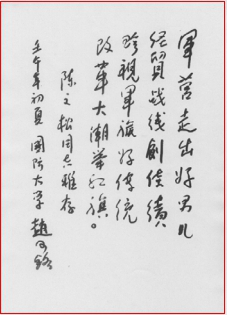 军营走出好男儿
经贸战线创佳绩
珍视军旅好传统
改革大潮举红旗。
陈之松同志雅存
壬午年初夏 国防大学 赵可铭